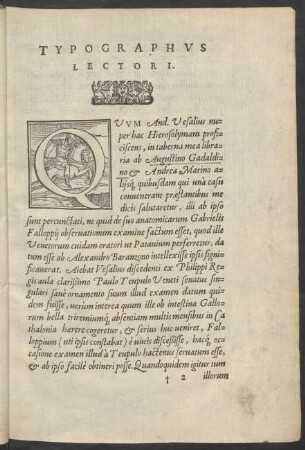 TYPOGRAPHVS
LECTORI.
QVVM And. Vesalius nu-
per hac Hierosolymam profi-
ciscens, in taberna mea libra-
ria ab Augustino Gadaldi-
no & Andrea Marino a-
lijsq́; quibusdam qui unà casu
conuenerant præstantibus me
dicis salutaretur, illi ab ipso
sunt percunctati, ne quid de suo anatomicarum Gabrielis
Falloppij obseruationum examine factum esset, quod ille
Venetorum cuidam oratori ut Patauium perferretur, da
tum esse ab Alexandro Baranzono intellexisse ipsis signi-
ficauerat. Aiebat Vesalius discedenti ex Philippi Re-
gis aula clarissimo Paulo Teupulo Veneti senatus sin-
gulari sanè ornamento suum illud examen datum qui-
dem fuisse, uerùm interea quum ille ob intestina Gallo-
rum bella triremiumq́; absentiam multis mensibus in Ca
thalonia hærere cogeretur, & serius huc ueniret, Fal-
loppium (uti ipsis constabat) è uiuis discessisse, hacq́; oc-
casione examen illud à Teupulo hactenus seruatum esse,
& ab ipso facilè obtineri posse. Quandoquidem igitur tum
† 2 illorum